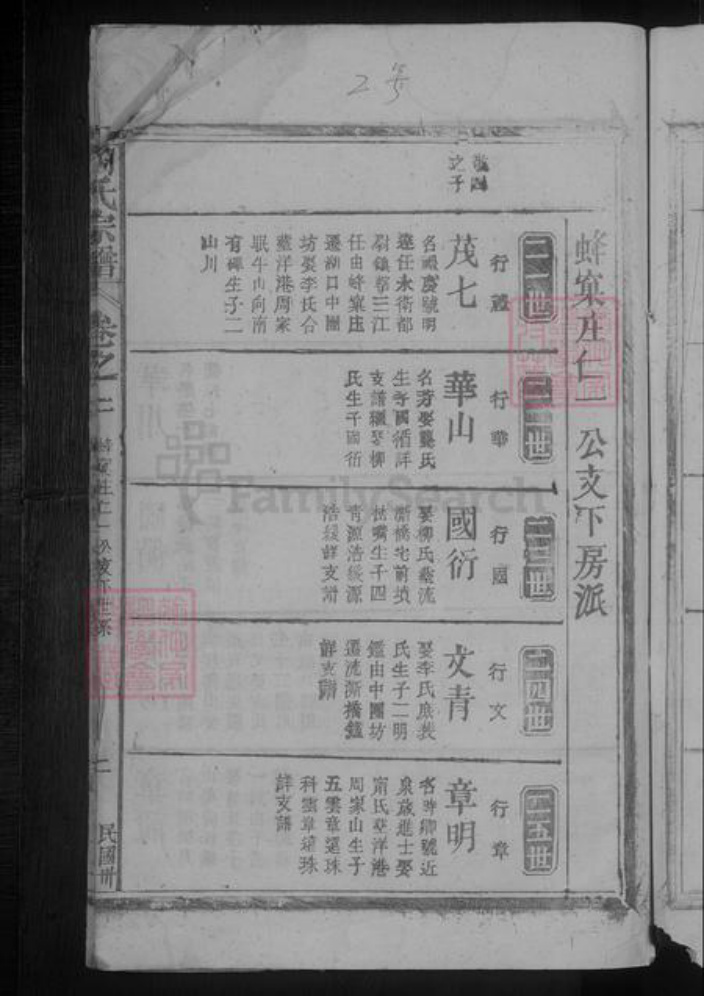 2号
蜂窠庄仁一公支下房派
敬四
之子
二一世
行禮
茂七
名禮慶號明
遠任永衛都
尉鎮擊三江
任由蜂窠庄
遷湖口中團
坊娶李氏合
葬洋港周家
眠牛山向南
有碑生子二
山川
二二世
行華
華山
名芳娶龔氏
生子國循詳
支譜繼娶柳
氏生子國衍
二三世
行國
國衍
娶柳氏
橋宅前墳
嘴生子四
青源浩綬源
浩綬詳支譜
二四世
行文
文青
娶李氏庶裴
氏生子二明
鑑由中團坊
遷流澌橋鑑
詳支譜
二五世
行章
章明
名時卿號近
泉歲進士娶
甯氏葬洋港
周家山生子
五雲章還珠
科雲章還珠
詳支譜
氏宗譜
卷之十一
蜂窠庄仁一公支下世系
二
民國卅
FamilySearch